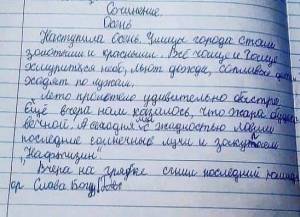 Сочинение.
Осень
Наступила осень. Улицы города стали
золотыми и красными. Всё чаще и чаще
хмурится небо, льют дожди, сопливые дети
ходят по лужам.
Лето пролетело удивительно быстро,
Ещё вчера нам казалось, что жара будет
вечной. А сегодня мы с жадностью ловим
последние солнечные лучи и закупаем
"Нафтизин"
Вчера на грядке сгнил последний помид
ор. Слава Богу!